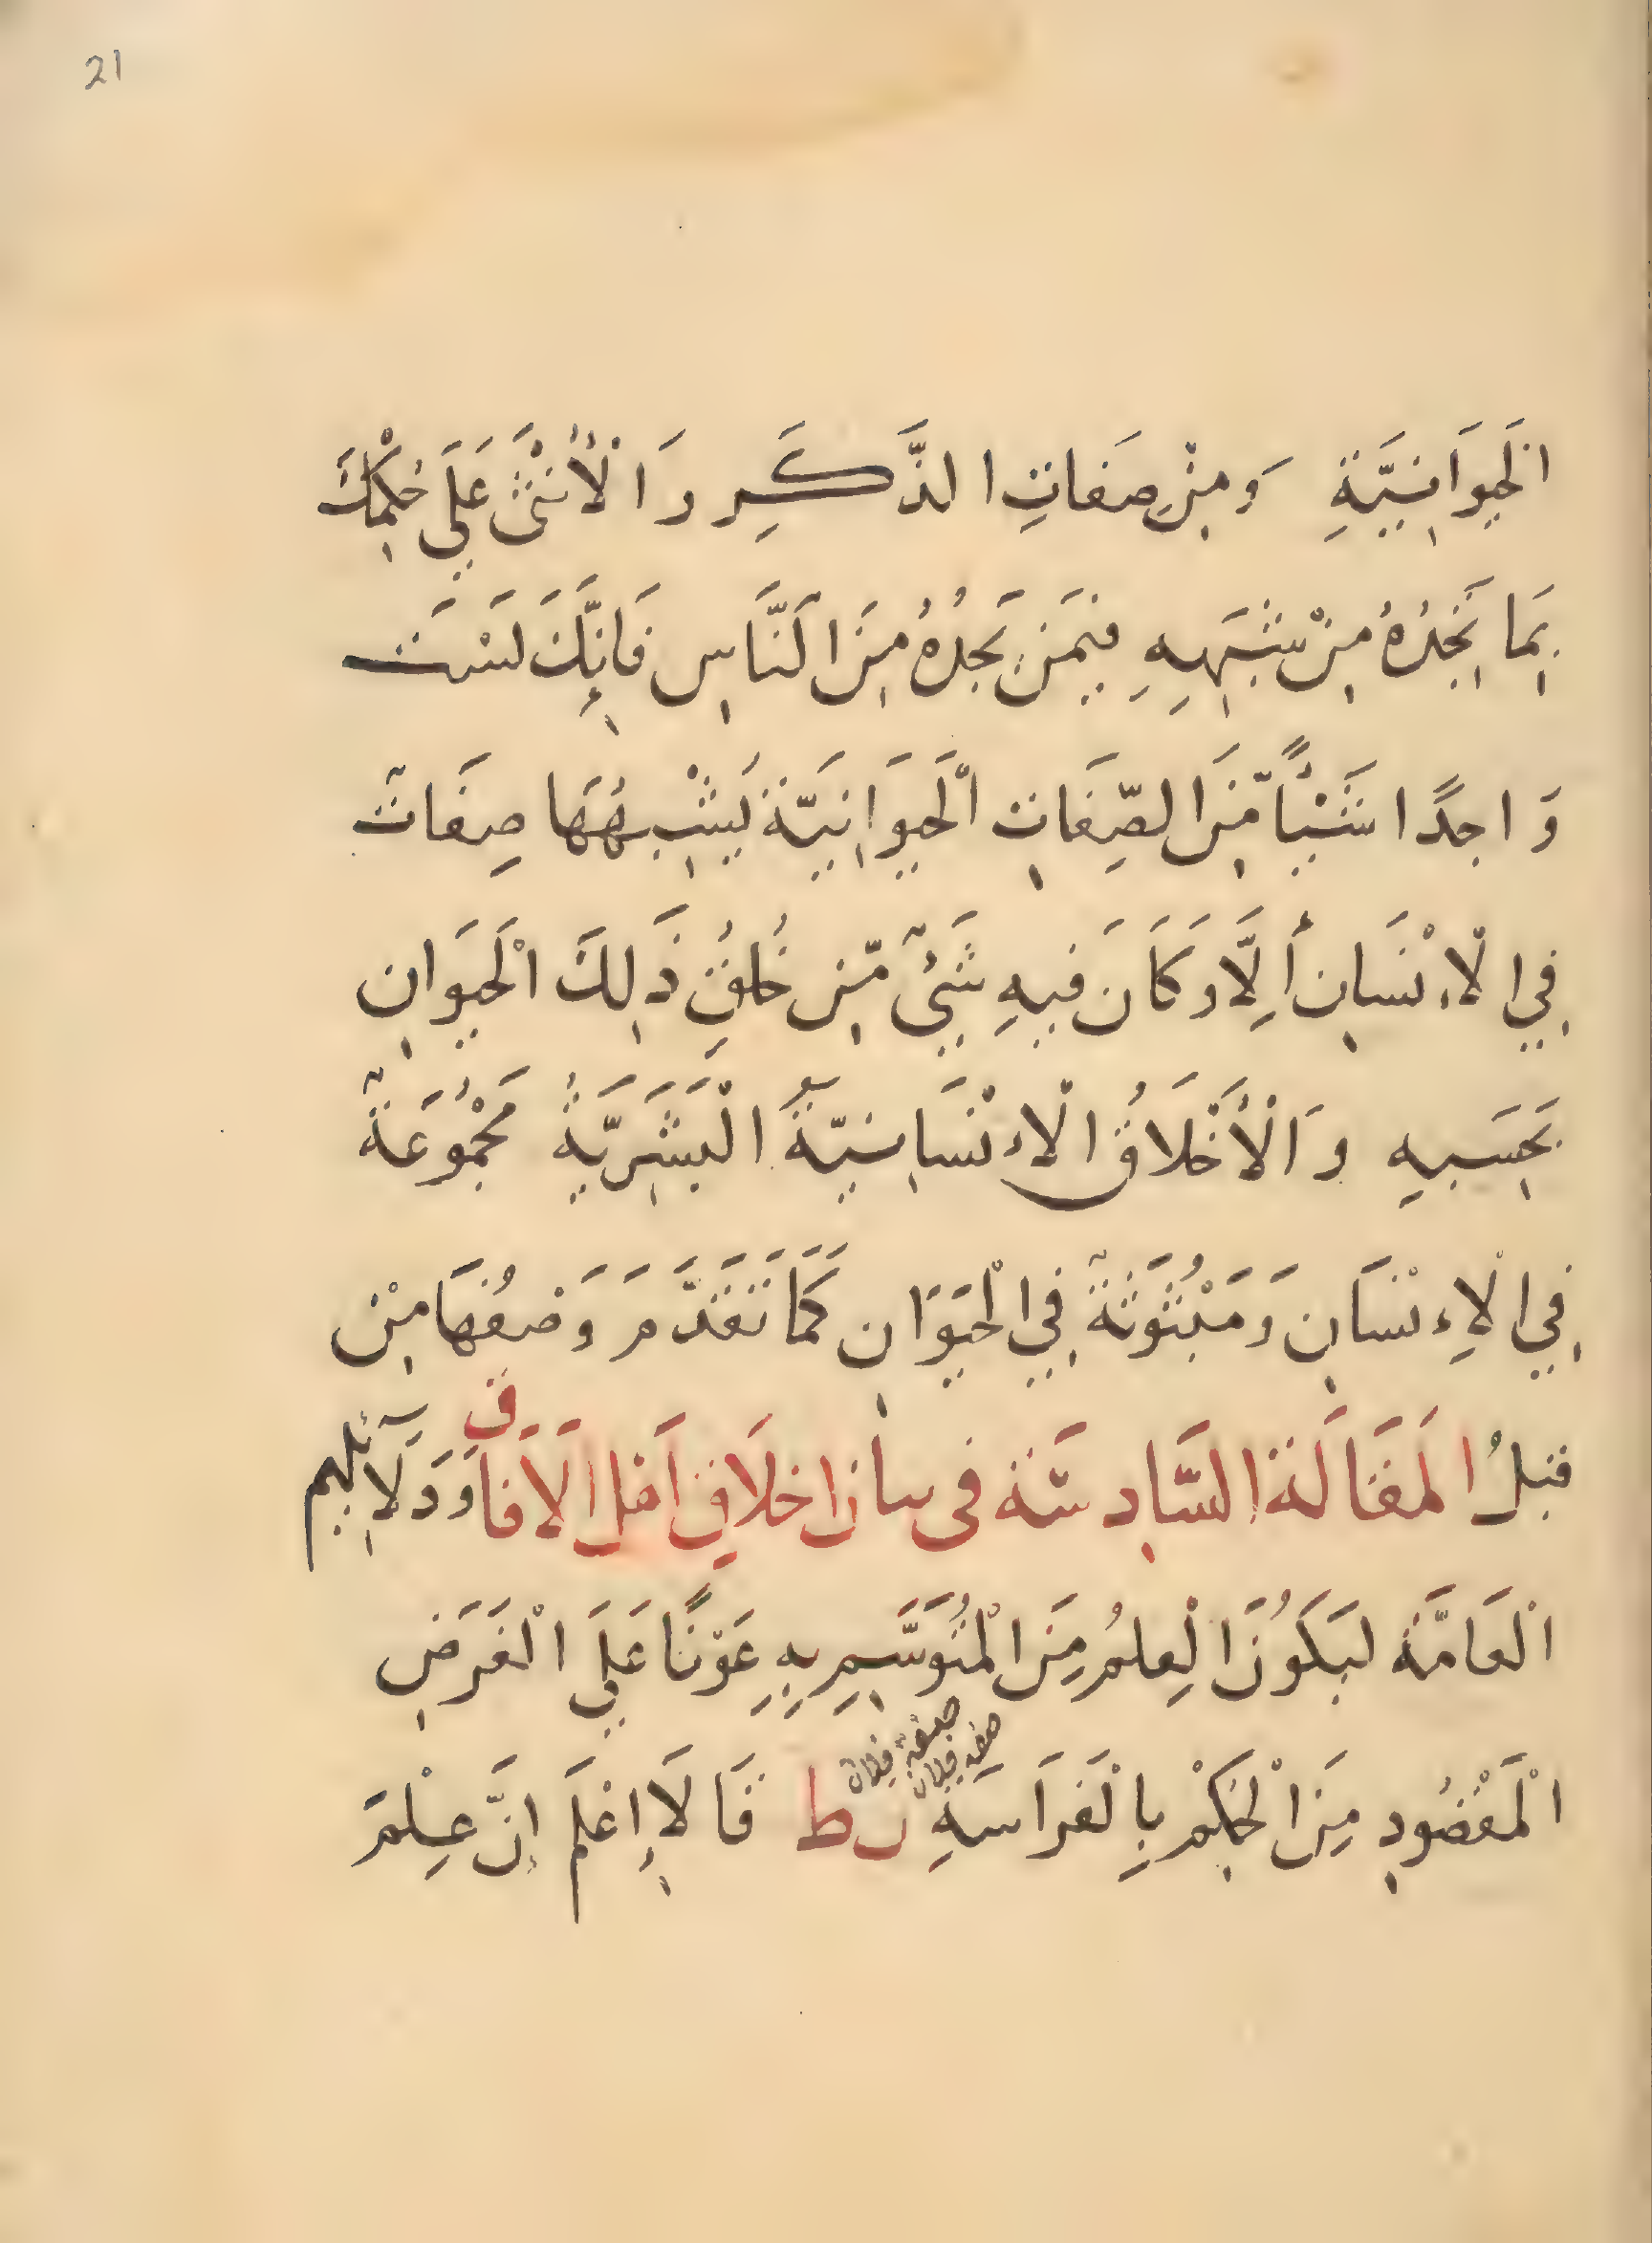 21
الْحَيَوَانِيَّةِ وَمِنْ صِفَاتِ الذَّكَرِ وَالْأُنْثَى عَلَى حُكْمِكَ
بِمَا تَجِدُهُ مِنْ شَبَهِهِ فِيمَنْ تَجِدُهُ مِنَ النَّاسِ فَاِنَّكَ لَسْتَ
وَاجِدًا شَيْئًا مِّنَ الصِّفَاتِ الْحَيَوَانِيَّةِ يَشْبِهُهَا صِفَاتٌ
فِي الْاِنْسَانِ أِلَّا وَكَانَ فِيهِ شَيْئٌ مِّنْ خُلُقِ ذَلِكَ الْحَيَوَانِ
بِحَسَبِهِ وَالْأَخْلَاقُ الْاِنْسَانِيَّةُ الْبَشَرِيَّةُ مَجْمُوعَةٌ
فِي الْاِنْسَانِ وَمَبْثُوثَةٌ فِي الْحَيَوَانِ كَمَا تَقَدَّمَ وَصْفُهَا مِنْ
قَبْلُ الْمَقَالَةُ السَّادِسَةُ فى بيان اخلَاقِ اَهْلِ الْاَفَاقِ وَدَلَآئِلِهِم
الْعَامَّةِ لِيَكُونَ الْعِلْمُ مِنَ الْمُتَوَسَّمِ بِهِ عَوْنًا عَلَى الْغَرَضِ
صفه فلان صفة فلان
الْمَقْصُودِ مِنَ الْحُكْمِ بِالْفَرَاسَةِ ن ط قَالَا اِعْلَمْ اِنَّ عِلْمَ